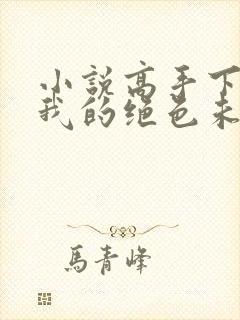 小説高手下
我的绝色未
馬青峰